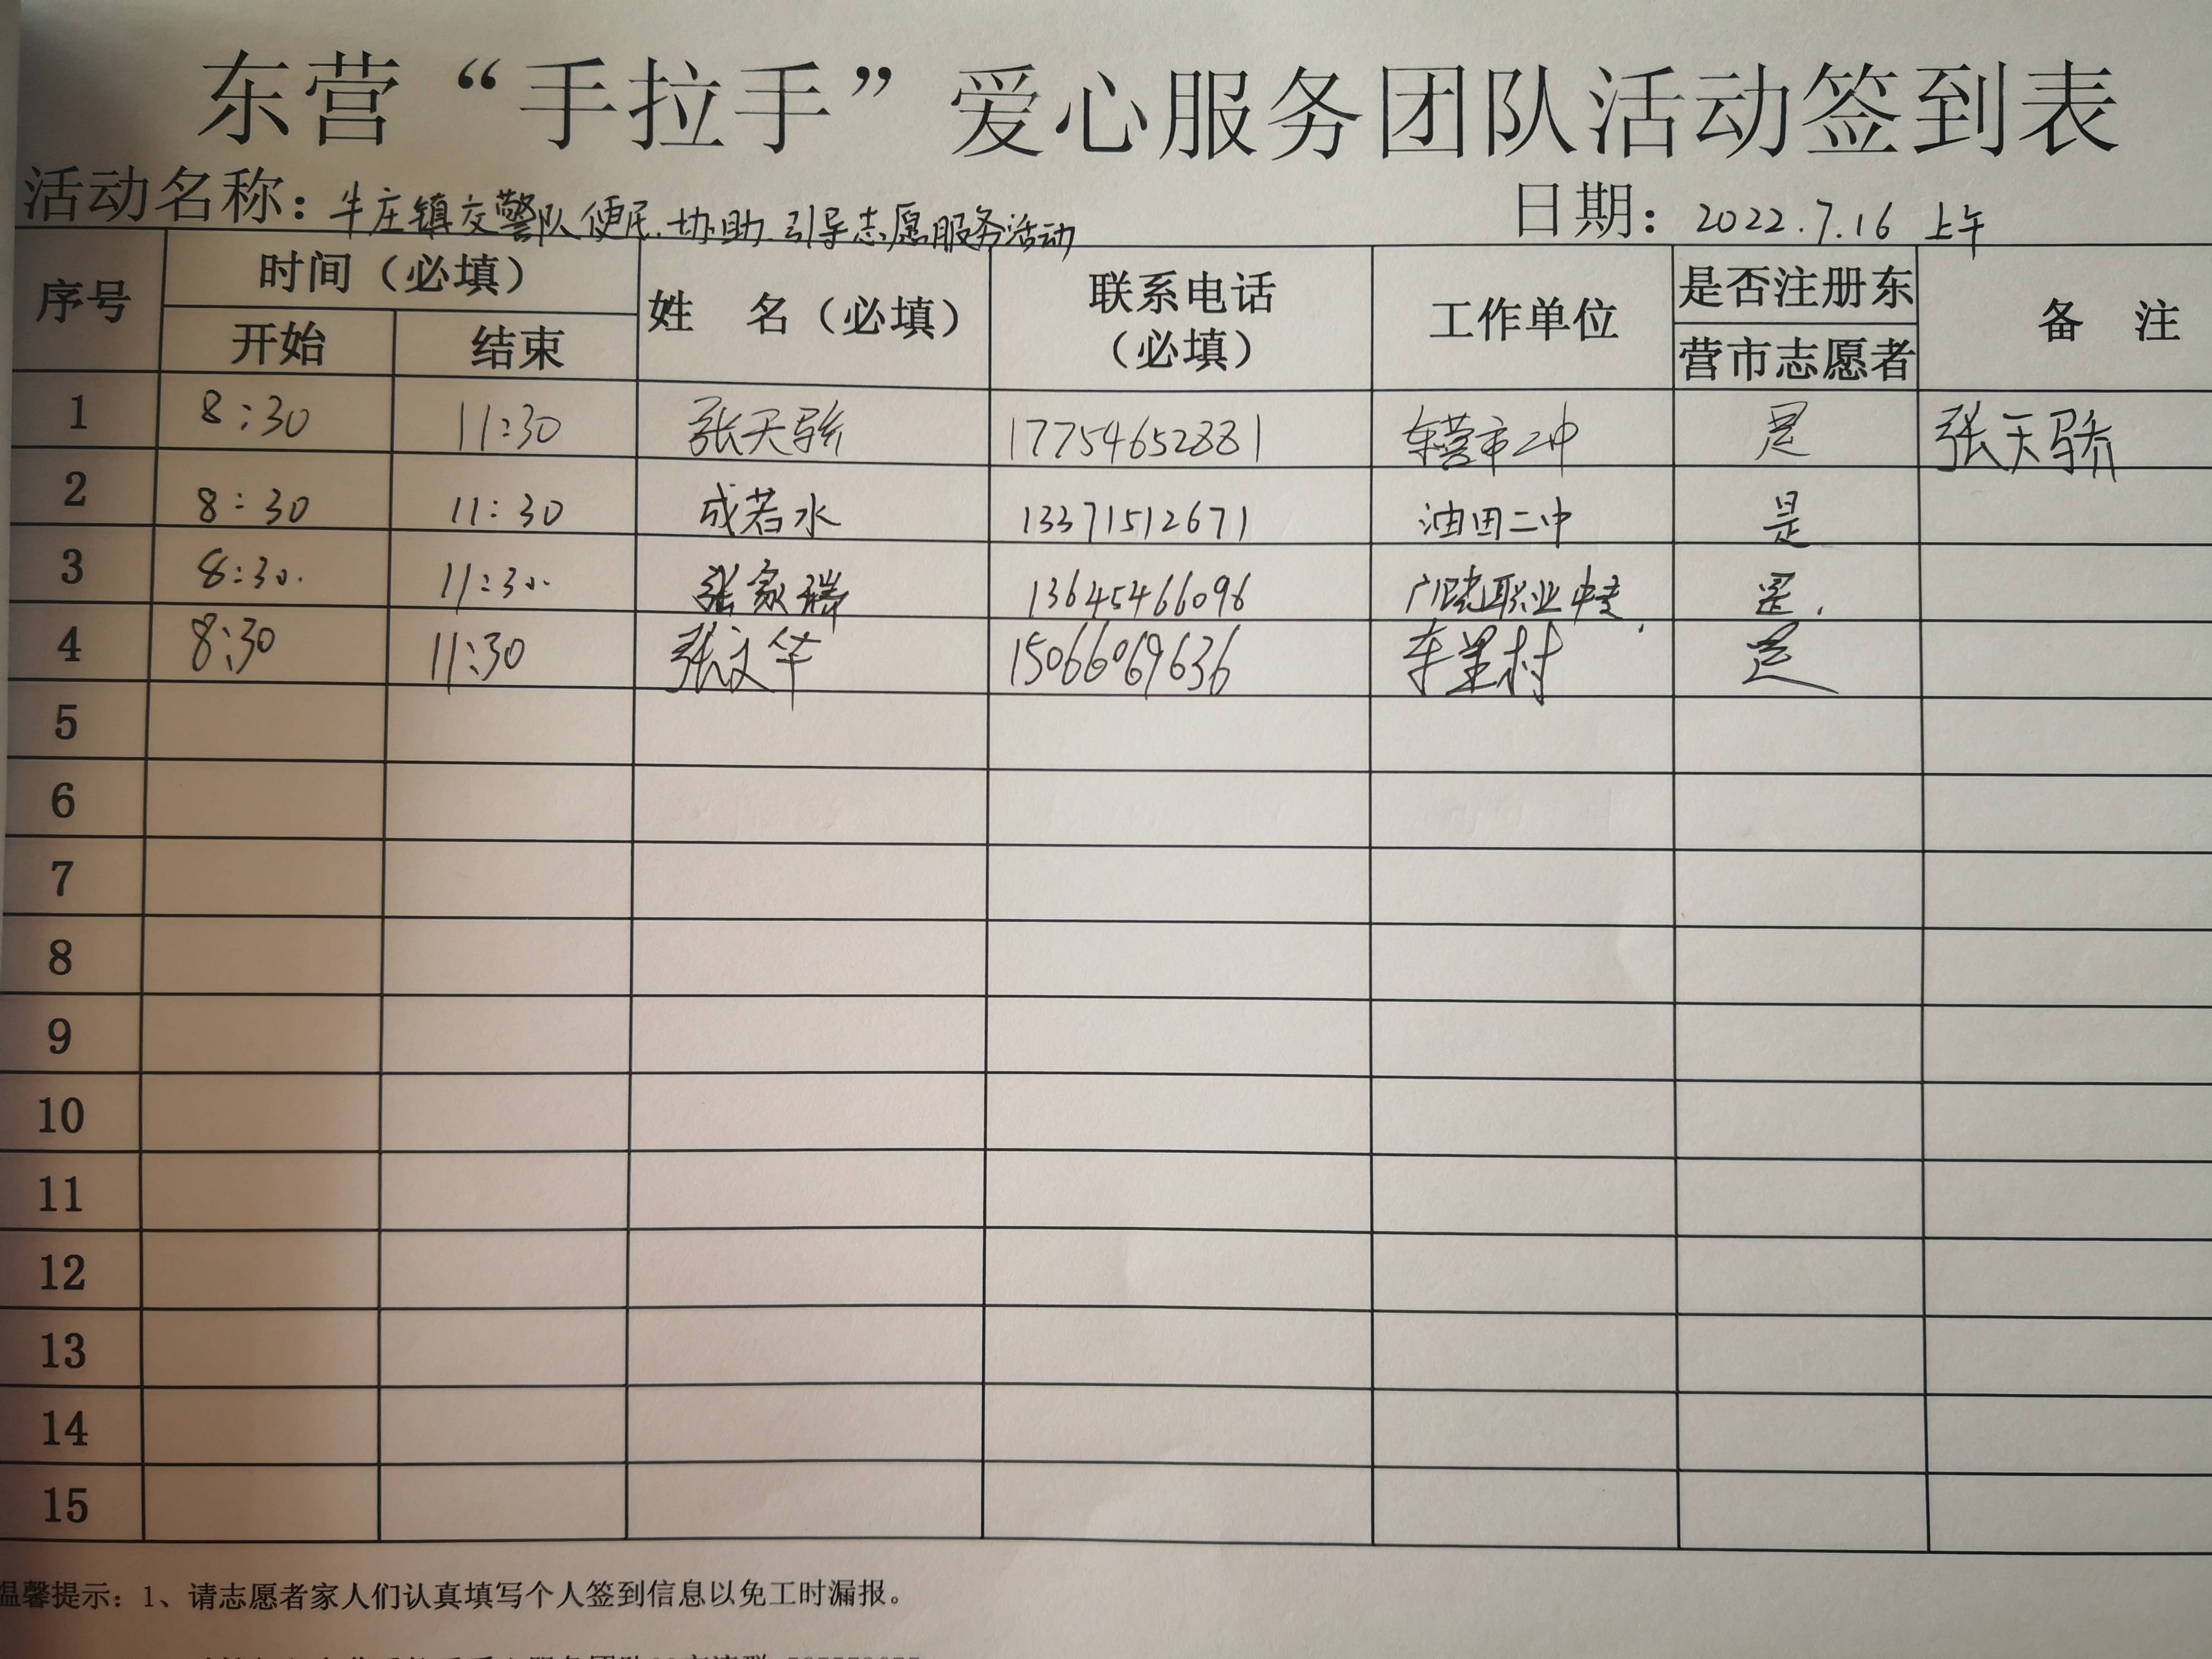 东营“手拉手”爱心服务团队活动签到表
活动名称：牛庄镇交警队便民.协助.引导志愿服务活动 日期：2022.7.16 上午
序号 时间（必填） 姓 名（必填） 联系电话（必填） 工作单位 是否注册东营市志愿者 备 注
开始 结束
1 8:30 11:30 张天骄 17754652881 东营市二中 是 张天骄
2 8:30 11:30 成若水 13371512671 油田二中 是
3 8:30. 11:30. 张家瑞 13645466096 广饶职业中专. 是.
4 8:30 11:30 张文华 15066069636 村 是
5
6
7
8
9
10
11
12
13
14
15
温馨提示：1、请志愿者家人们认真填写个人签到信息以免工时漏报。